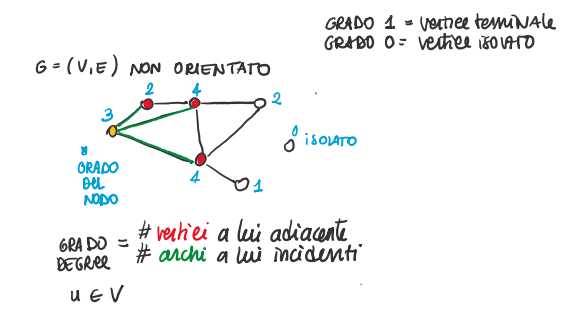 GRADO 1 = vertice terminale
GRADO 0 = vertice isolato
G = (V, E) NON ORIENTATO
2
4
2
3
0
isolato
* GRADO
DEL
NODO
4
1
GRADO = # vertici a lui adiacente
DEGREE # archi a lui incidenti
u ∈ V